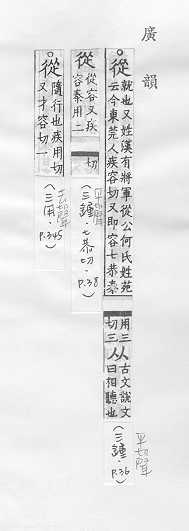 廣韻
從
就也又姓漢有將軍從公何氏姓苑
云今東莞人疾容切又即容七恭秦
用三
切三
从
古文說文
曰相聽也
(三鍾·P.36)
平聲
從
從容又疾
容秦用二
切
(三鍾·七恭切·P.38)
平聲
從
隨行也疾用切
又才容切一
(三用·P.345)
去聲